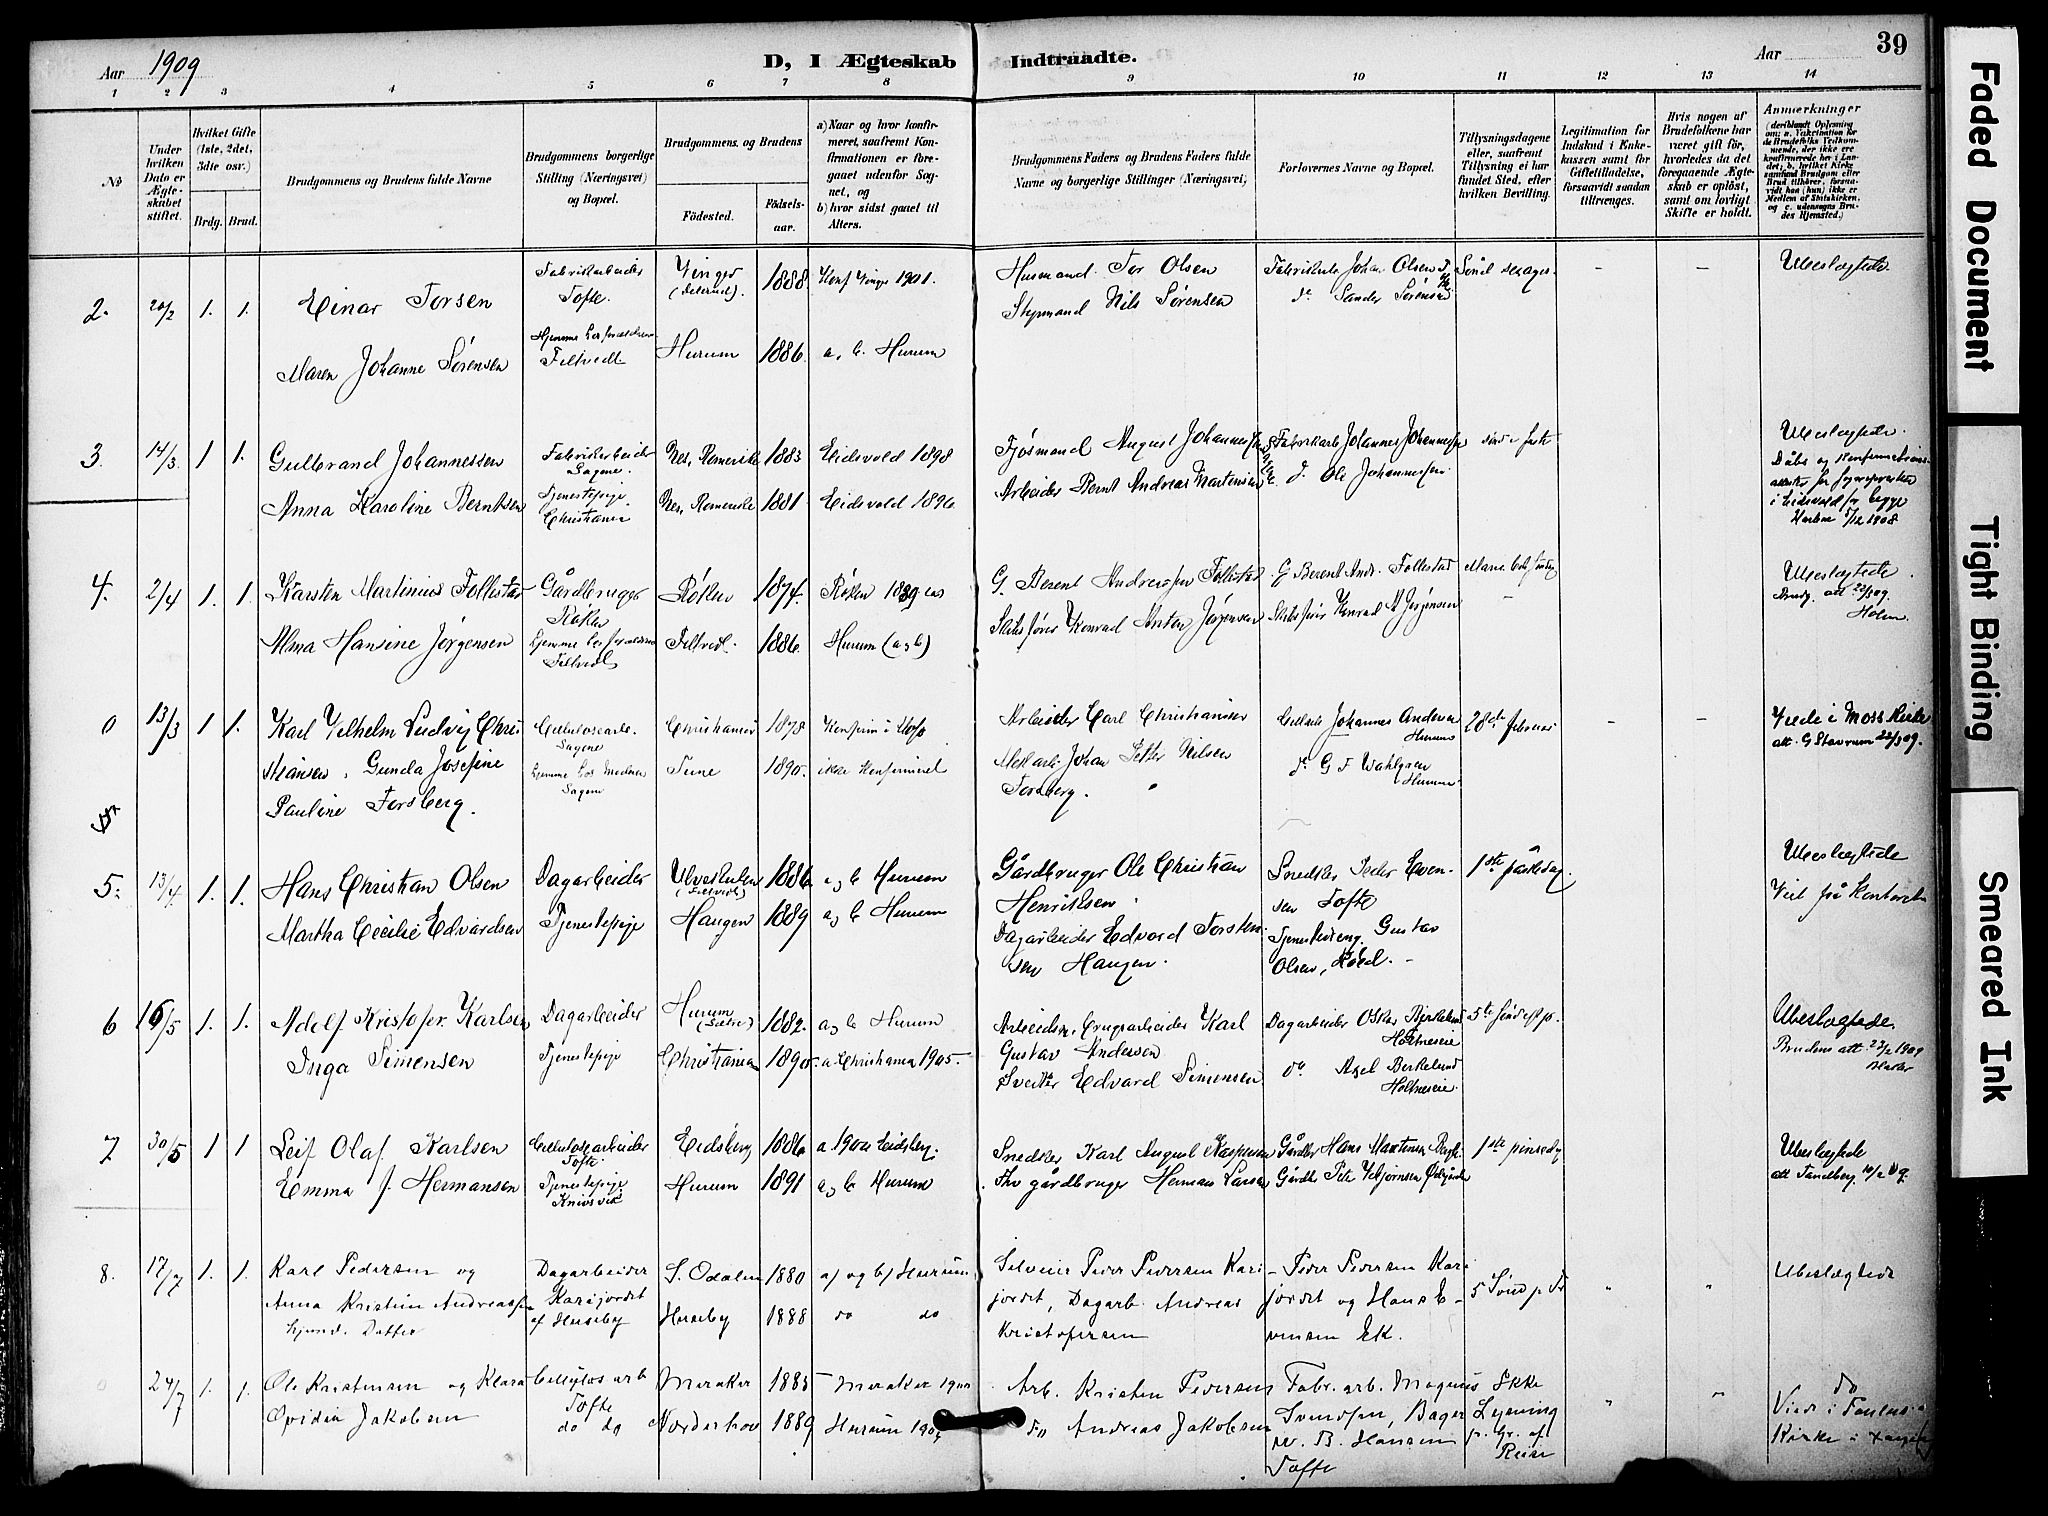 Aar 1909
D, I Ægteskab Indtraadte.
Aar 39
1 2 3 4 5 6 7 8 9 10 11 12 13 14
No
Under hvilken Dato er Ægteskabet stiftet.
Hvilket Gifte (1ste, 2det, 3dte osv.)
Brdg. Brud.
Brudgommens og Brudens fulde Navne
Brudgommens borgerlige Stilling (Næringsvei) og Bopæl.
Brudgommens og Brudens
Födested.
Födselsaar.
a) Naar og hvor konfirmeret, saafremt Konfirmationen er foregaaet udenfor Sognet, og
b) hvor sidst gaaet til Alters.
Brudgommens Faders og Brudens Faders fulde Navne og borgerlige Stillinger (Næringsvei)
Forlovernes Navne og Bopæl.
Tillysningsdagene eller, saafremt Tillysning ei har fundet Sted, efter hvilken Bevilling.
Legitimation for Indskud i Enkekassen samt for Giftetilladelse, forsaavidt saadan tiltrænges.
Hvis nogen af Brudefolkene har været gift för, hvorledes da det foregaaende Ægteskab er oplöst, samt om lovligt Skifte er holdt.
Anmerkninger
2. 20/2 1. 1. Einar Torsen Fabrikarbeider Tofte. Vinger 1888. Konf Vinger 1901. Husmand Tor Olsen Johan Olsen Ubeslægtede
Maren Johanne Sørensen Hjemme hos forældrene Filtvedt Hurum 1886. a, b. Hurum Styrmand Nils Sørensen do Sander Sørensen
3. 14/3 1 1. Gulbrand Johannessen Fabrikarbeider Sagene. Nes, Romerike 1883 Eidsvold 1898 Fjøsmand August Johannessen Johannes Johannessen Ubeslægtede.
Anna Karoline Berntsen Tjenestepige Christiania Nes, Romerike 1881 Eidsvold 1896 Arbeider Bernt Andreas Martensen do Ole Johannessen. i Eidsvold for begge 5/12 1908
4. 2/4 1. 1. Karsten Martinius Follestad Gårdbruger Røken Røken 1874. Røken 1889 G. Berent Andreassen Follestad G Berent Andr. Follestad Ubeslægtede. Holm
Alma Hansine Jørgensen Hjemme hos forældrene Filtvedt Filtvedt. 1886. Hurum (a, b) Konrad Anton Jørgensen Konrad A Jørgensen
0 13/3 1 1. Karl Vilhelm Ludvig Christiansen, Gunda Josefine Pauline Forsberg. Cellulosearb. Sagene Christiania 1878 Arbeider Carl Christiansen Johannes Andersen Hurum 28de februar Viede i Moss Kirke att. G Stavrum 22/3 09.
hjemme hos Sagene Tune 1890. ikke konfirmeret Johan Petter Nilsen Forsberg. do G F Wahlgren Hurum
5. 13/4 1. 1. Hans Christian Olsen Dagarbeider (Filtvedt) 1886 a, b Hurum Gårdbruger Ole Christian Henriksen. Snedker Peder Evensen Tofte 1ste påskedag. Ubeslægtede Viet på Kontoret
Martha Cecilie Edvardsen Tjenestepige Haugen 1889 a, b Hurum Dagarbeider Edvard Torstensen Haugen. Tjenestedreng Gustav Olsen,
6 16/5 1. 1. Adolf Kristofer Karlsen Dagarbeider Hurum (Sætre) 1882. a, b Hurum Karl Gustav Andersen Dagarbeider Oskar Bjerkelund Holtneseie Ubeslægtede.
Inga Simensen Tjenestepige Christiania 1890. a. Christiania 1905. Edvard Simensen do Axel Berkelund Holtneseie. Brudens att. 23/2 1909
7 30/5 1 1 Leif Olaf Karlsen Cellulosearbeider Tofte. Eidsberg 1886 a. 1900 Eidsberg. Snedker Karl August Kaspersen Gårdbr Hans Martinsen 1ste pinsedag Ubeslægtede
Emma J. Hermansen Tjenestepige Knivsvik Hurum 1891 a, b Hurum gårdbruger Herman Larsen Gårdbr att Sandberg 10/2 09.
8. 17/7 1. 1. Karl Pedersen og Dagarbeider Karijordet S. Odalen 1880 a/ og b/ Hurum Selveier Peder Pedersen Karijordet, Dagarb. Andreas Kristofersen Peder Pedersen Karijordet og Hans Evensen Ek. 5 Sønd p Tr " " Ubeslægtede
Anna Kristine Andreassen hjemv. Datter af Huseby Huseby 1888 do do
24/7 1. 1. Ole Kristensen og Klara Ovidia Jakobsen Celluløs arb Tofte do do Meraker 1885 Meraker 1900 Arb. Kristen Pedersen Fabr. arb. Magnus Svendsen, Bager B. Hansen Tofte Ikke Lysning p. Gr. af Reise " " do Viede i Paulus Kirke i
Norderhov 1889 Hurum 1904 do Andreas Jakobsen
Faded Document
Tight Binding
Smeared Ink